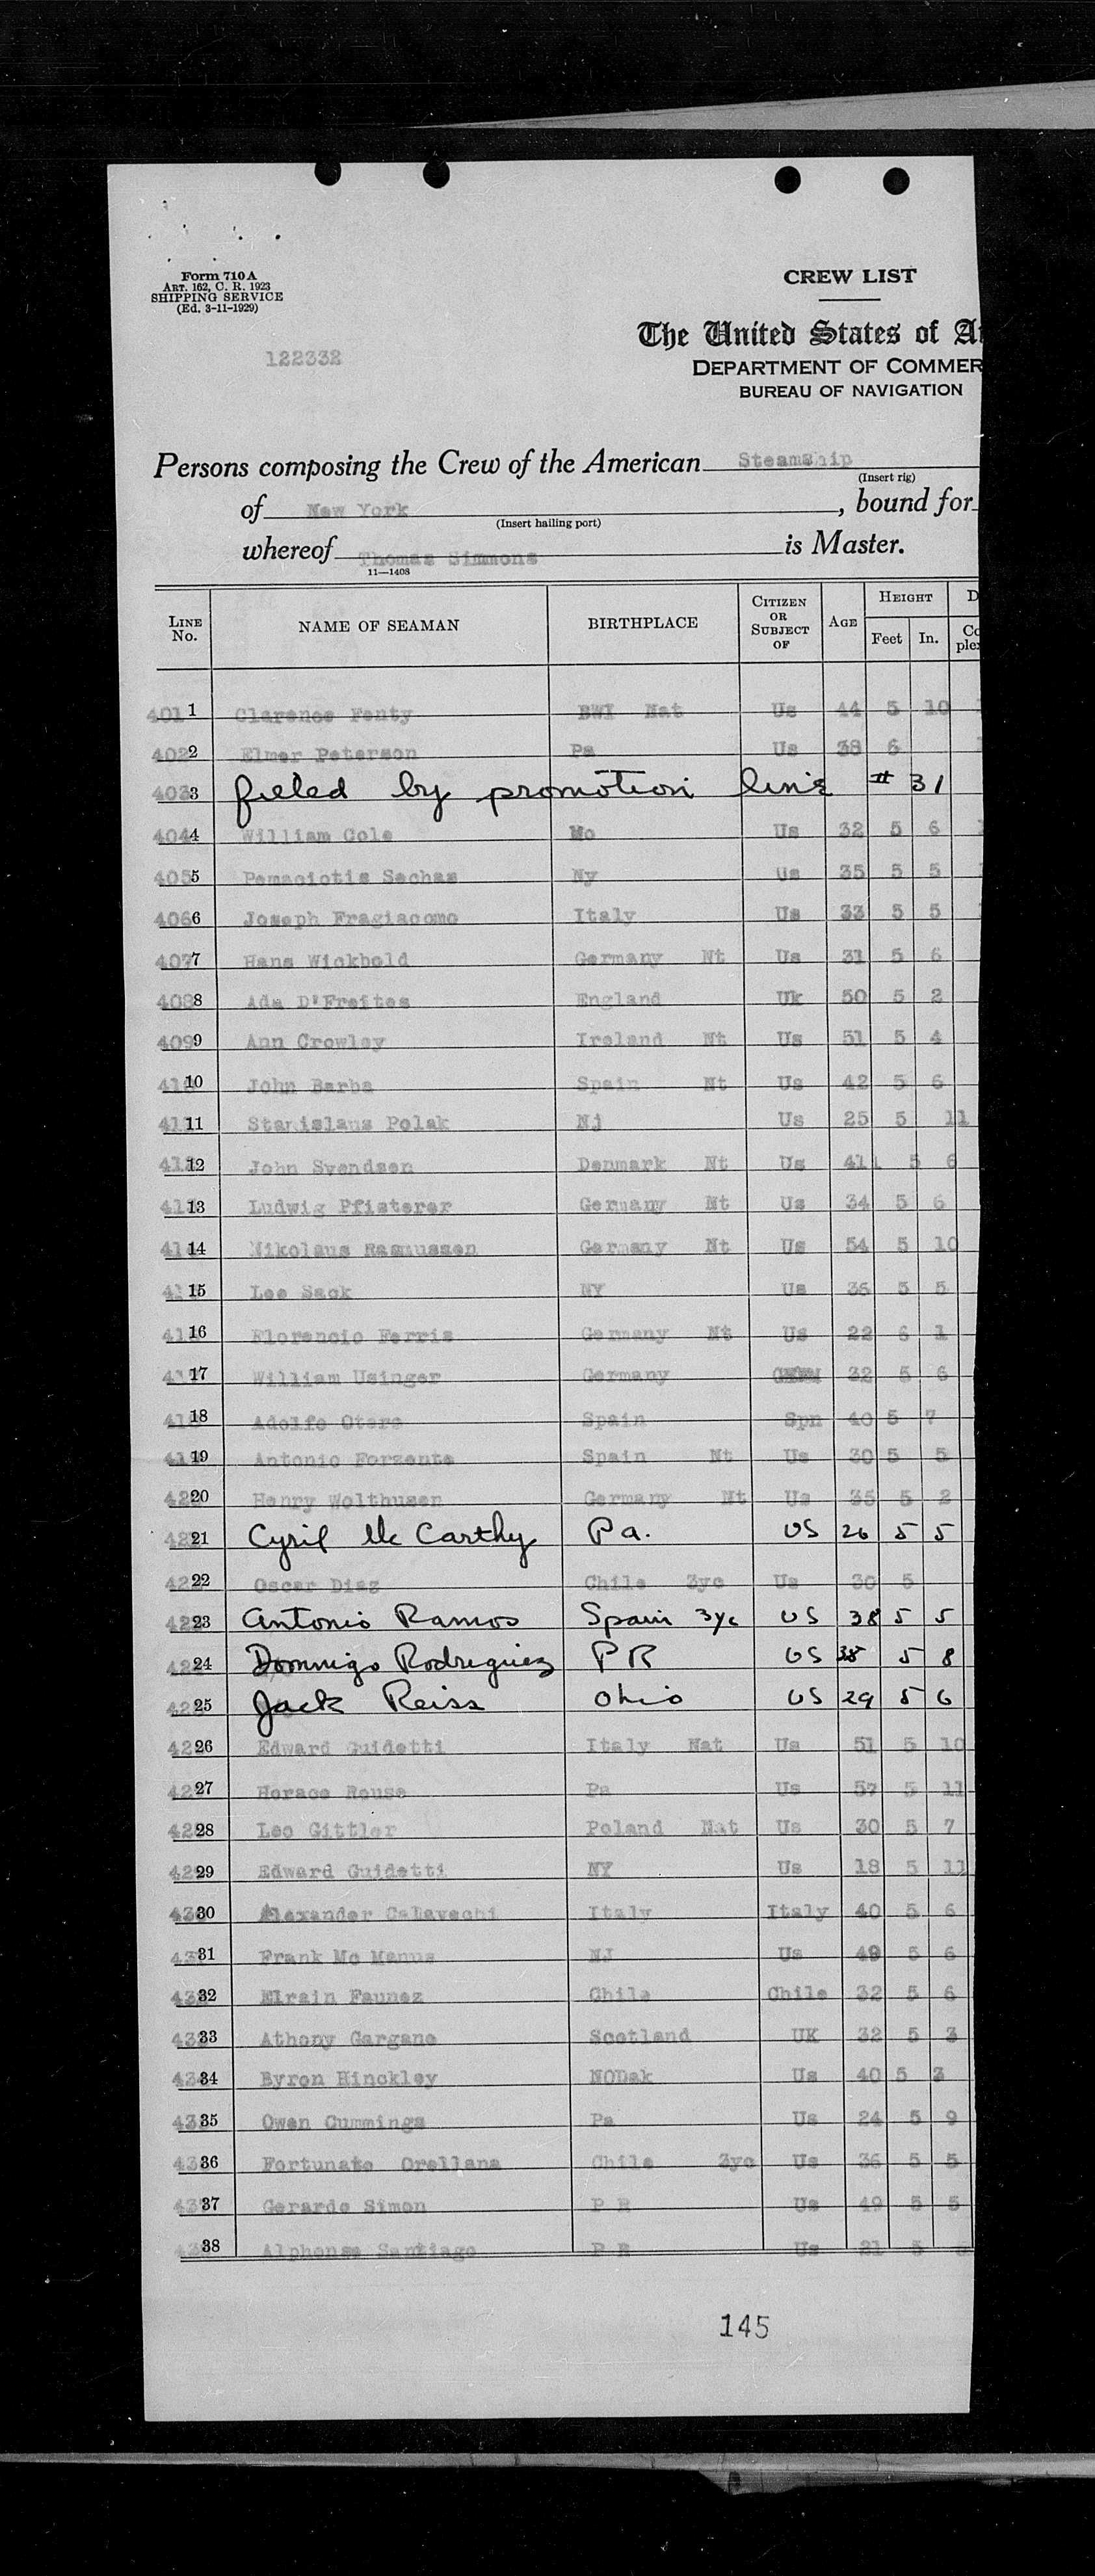 Form 710 A
ART. 162, C. R. 1923
SHIPPING SERVICE
(Ed. 3-11-1929)
CREW LIST
122332
The United States of A
DEPARTMENT OF COMMER
BUREAU OF NAVIGATION
Persons composing the Crew of the American Steamship
(Insert rig)
of New York, bound for
(Insert hailing port)
whereof Thomas Simmons is Master.
11—1408
LINE No. NAME OF SEAMAN BIRTHPLACE CITIZEN OR SUBJECT OF AGE HEIGHT Feet In. D Co plex
401 1 Clarence Fenty BWI Nat Us 44 5 10
402 2 Elmer Peterson Pa Us 38 6
403 3 filled by promotion line # 31
404 4 William Cole Mo Us 32 5 6
405 5 Pamaciotis Sachas Ny Us 35 5 5
406 6 Joseph Fragiacomo Italy Us 33 5 5
407 7 Hans Wickbold Germany Nt Us 31 5 6
408 8 Ada D'Freites England Uk 50 5 2
409 9 Ann Crowley Ireland Nt Us 51 5 4
410 10 John Barba Spain Nt Us 42 5 6
411 11 Stanislaus Polak Nj Us 25 5 11
412 12 John Svendsen Denmark Nt Us 41 5 6
413 13 Ludwig Pfisterer Germany Nt Us 34 5 6
414 14 Nikolaus Rasmussen Germany Nt Us 54 5 10
415 15 Leo Sack NY Us 36 5 5
416 16 Florencio Ferris Germany Nt Us 22 6 1
417 17 William Usinger Germany 32 5 6
418 18 Adolfo Otero Spain Spn 40 5 7
419 19 Antonio Forzente Spain Nt Us 30 5 5
420 20 Henry Wolthusen Germany Nt Us 35 5 2
421 21 Cyril Mc Carthy Pa. US 26 5 5
422 22 Oscar Diaz Chile 3yc Us 30 5
423 23 Antonio Ramos Spain 3yc US 38 5 5
424 24 Domnigo Rodreguiez PR US 38 5 8
425 25 Jack Reiss Ohio US 29 5 6
426 26 Edward Guidetti Italy Nat Us 51 5 10
427 27 Horace Rouse Pa Us 57 5 11
428 28 Leo Gittler Poland Nat Us 30 5 7
429 29 Edward Guidetti NY Us 18 5 11
430 30 Alexander Calavechi Italy Italy 40 5 6
431 31 Frank Mc Manus NJ Us 49 5 6
432 32 Elrain Faunez Chile Chile 32 5 6
433 33 Athony Gargano Scotland UK 32 5 3
434 34 Byron Hinckley NODak Us 40 5 3
435 35 Owen Cummings Pa Us 24 5 9
436 36 Fortunato Orellana Chile 3yc Us 36 5 5
437 37 Gerardo Simon P R Us 49 5 5
438 38 Alphonse Santiago P R Us 21 5
145